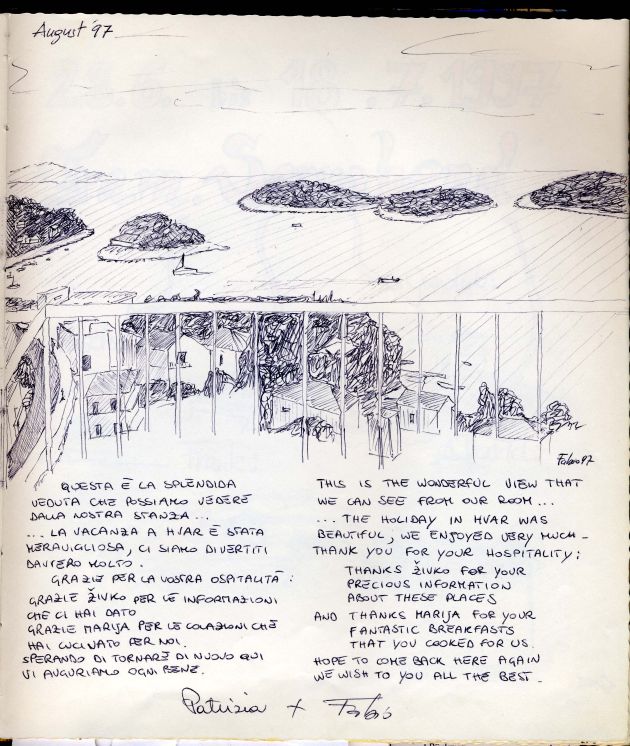 August '97
Fabio 97
QUESTA È LA SPLENDIDA
VEDUTA CHE POSSIAMO VEDERE
DALLA NOSTRA STANZA...
... LA VACANZA A HVAR È STATA
MERAVIGLIOSA, CI SIAMO DIVERTITI
DAVVERO MOLTO.
GRAZIE PER LA VOSTRA OSPITALITÀ:
GRAZIE ŽIVKO PER LE INFORMAZIONI
CHE CI HAI DATO
GRAZIE MARIJA PER LE COLAZIONI CHE
HAI CUCINATO PER NOI.
SPERANDO DI TORNARE DI NUOVO QUI
VI AUGURIAMO OGNI BENE.
THIS IS THE WONDERFUL VIEW THAT
WE CAN SEE FROM OUR ROOM...
... THE HOLIDAY IN HVAR WAS
BEAUTIFUL, WE ENJOYED VERY MUCH -
THANK YOU FOR YOUR HOSPITALITY:
THANKS ŽIVKO FOR YOUR
PRECIOUS INFORMATION
ABOUT THESE PLACES
AND THANKS MARIJA FOR YOUR
FANTASTIC BREAKFASTS
THAT YOU COOKED FOR US.
HOPE TO COME BACK HERE AGAIN
WE WISH TO YOU ALL THE BEST -
Patrizia + Fabio